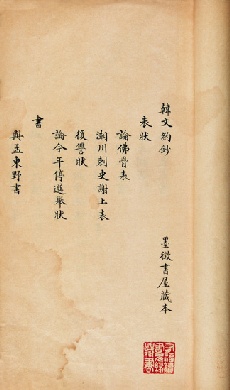 韓文約鈔
墨微書屋藏本
表狀
論佛骨表
潮州刺史謝上表
復讐狀
論今年停選舉狀
書
與孟東野書